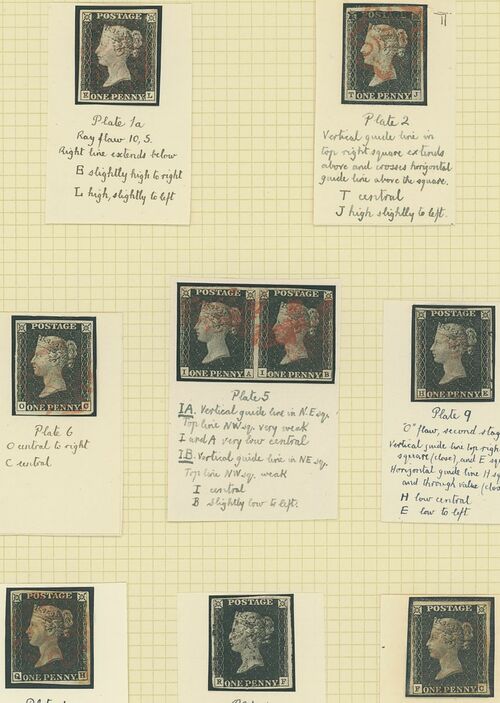 POSTAGE
E L
ONE PENNY
Plate 1a
Ray flaw 10, 5.
Right line extends below
E slightly high to right
L high, slightly to left
POSTAGE
T J
ONE PENNY
Plate 2
Vertical guide line in
top right square extends
above and crosses horizontal
guide line above the square.
T central
J high slightly to left.
POSTAGE
O C
ONE PENNY
Plate 6
O central to right
C central
POSTAGE POSTAGE
I A I B
ONE PENNY ONE PENNY
Plate 5
IA. Vertical guide line in N.E sq.
Top line NW sq. very weak
I and A very low central
IB. Vertical guide line in NE sq.
Top line NW sq. weak
I central
B slightly low to left.
POSTAGE
H E
ONE PENNY
Plate 9
"O" flaw, second stag
Vertical guide line top right
square (close), and E sq
Horizontal guide line H sq
and through value (clos
H low central
E low to left
POSTAGE
Q H
ONE PENNY
POSTAGE
R F
ONE PENNY
POSTAGE
F C
ONE PENNY